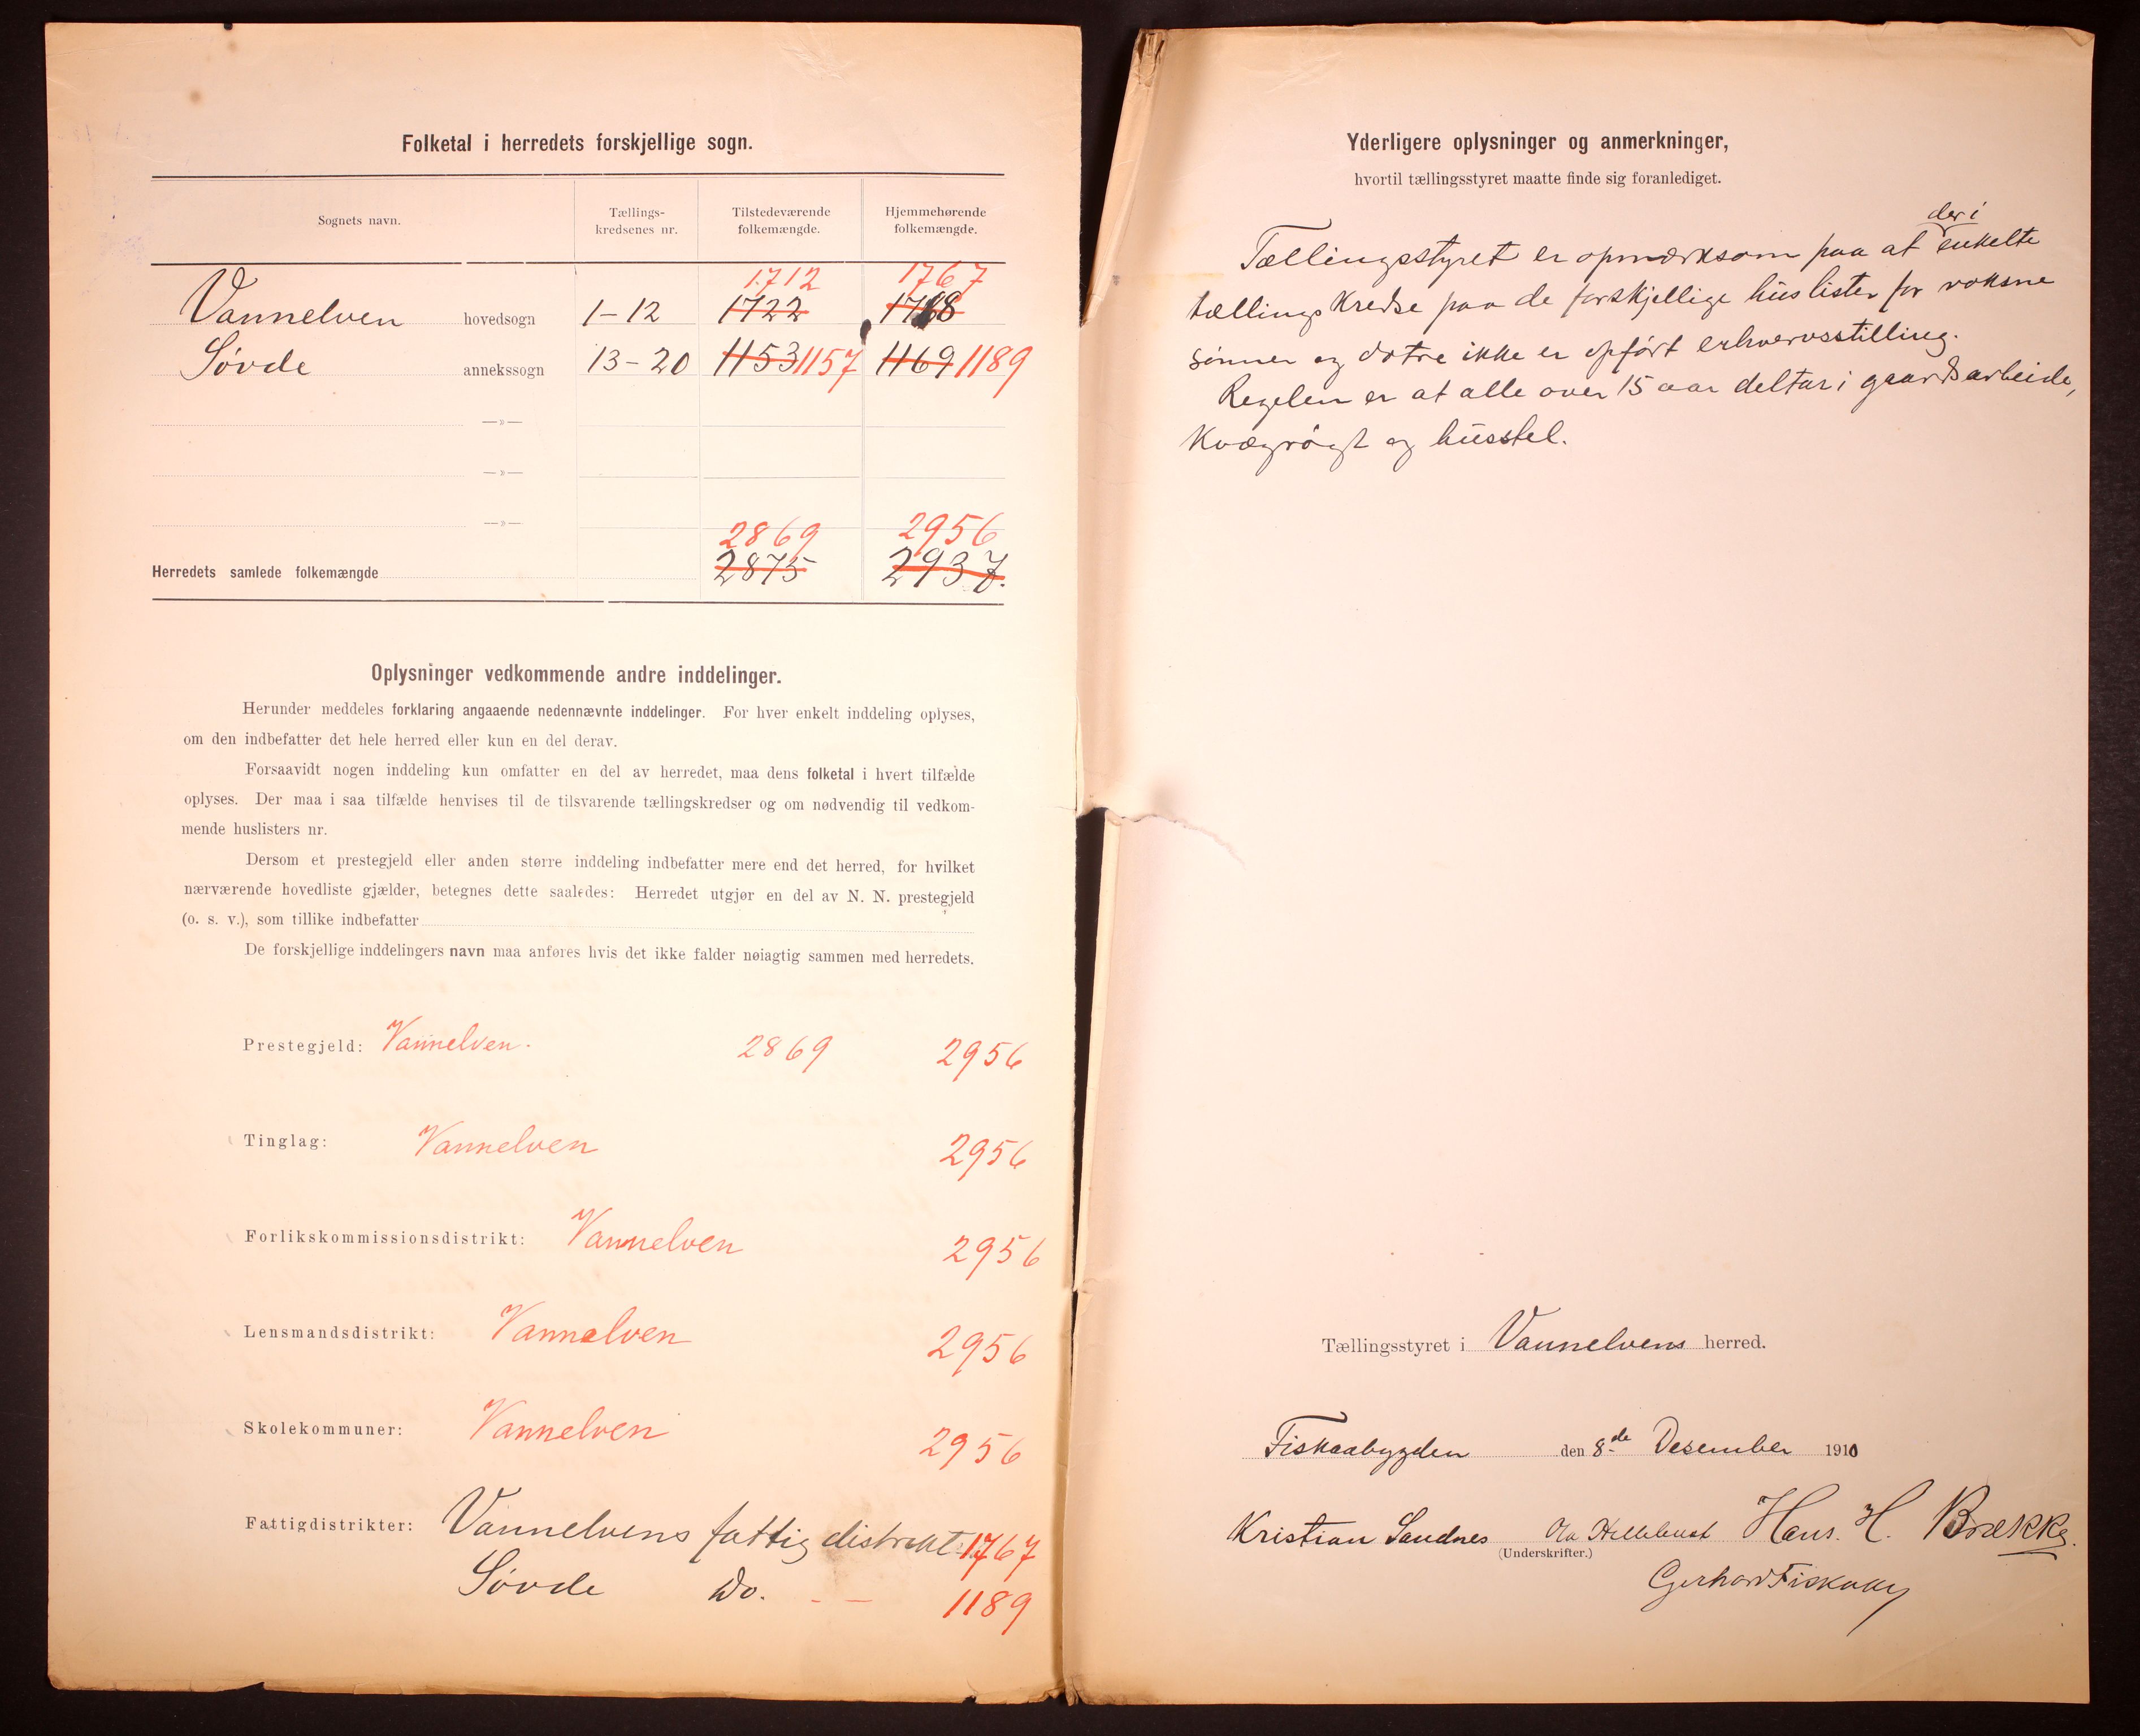 Folketal i herredets forskjellige sogn.
Sognets navn.
Tællings-
kredsenes nr.
Tilstedeværende
folkemængde.
Hjemmehørende
folkemængde.
1712 1767
Vannelven hovedsogn 1-12 1722
Søvde annekssogn 13-20 1153 1157 1169 1189
—»—
—»—
—»—
2869 2956
Herredets samlede folkemængde 2875 2937.
Oplysninger vedkommende andre inddelinger.
Herunder meddeles forklaring angaaende nedennævnte inddelinger. For hver enkelt inddeling oplyses,
om den indbefatter det hele herred eller kun en del derav.
Forsaavidt nogen inddeling kun omfatter en del av herredet, maa dens folketal i hvert tilfælde
oplyses. Der maa i saa tilfælde henvises til de tilsvarende tællingskredser og om nødvendig til vedkom-
mende huslisters nr.
Dersom et prestegjeld eller anden større inddeling indbefatter mere end det herred, for hvilket
nærværende hovedliste gjælder, betegnes dette saaledes: Herredet utgjør en del av N. N. prestegjeld
(o. s. v.), som tillike indbefatter
De forskjellige inddelingers navn maa anføres hvis det ikke falder nøiagtig sammen med herredets.
Prestegjeld: Vannelven. 2869 2956
Tinglag: Vannelven 2956
Forlikskommissionsdistrikt: Vannelven 2956
Lensmandsdistrikt: Vannelven 2956
Skolekommuner: Vannelven 2956
Fattigdistrikter: Vannelvens fattigdistrikt 1767
Søvde Do. - — 1189
Yderligere oplysninger og anmerkninger,
hvortil tællingsstyret maatte finde sig foranlediget.
der i
Tællingsstyret er opmærksom paa at enkelte
tællingskredse paa de forskjellige huslister for voksne
sønner og døtre ikke er opført erhvervsstilling.
Regelen er at alle over 15 aar deltar i gaardsarbeide,
Kvægrøgt og husstel.
Tællingsstyret i Vannelvens herred.
Fiskaabygden den 8de Desember 1910
Kristian Sandnes Ola Hellebust Hans. H. Brække.
(Underskrifter.)
Gerhard Fiskaa